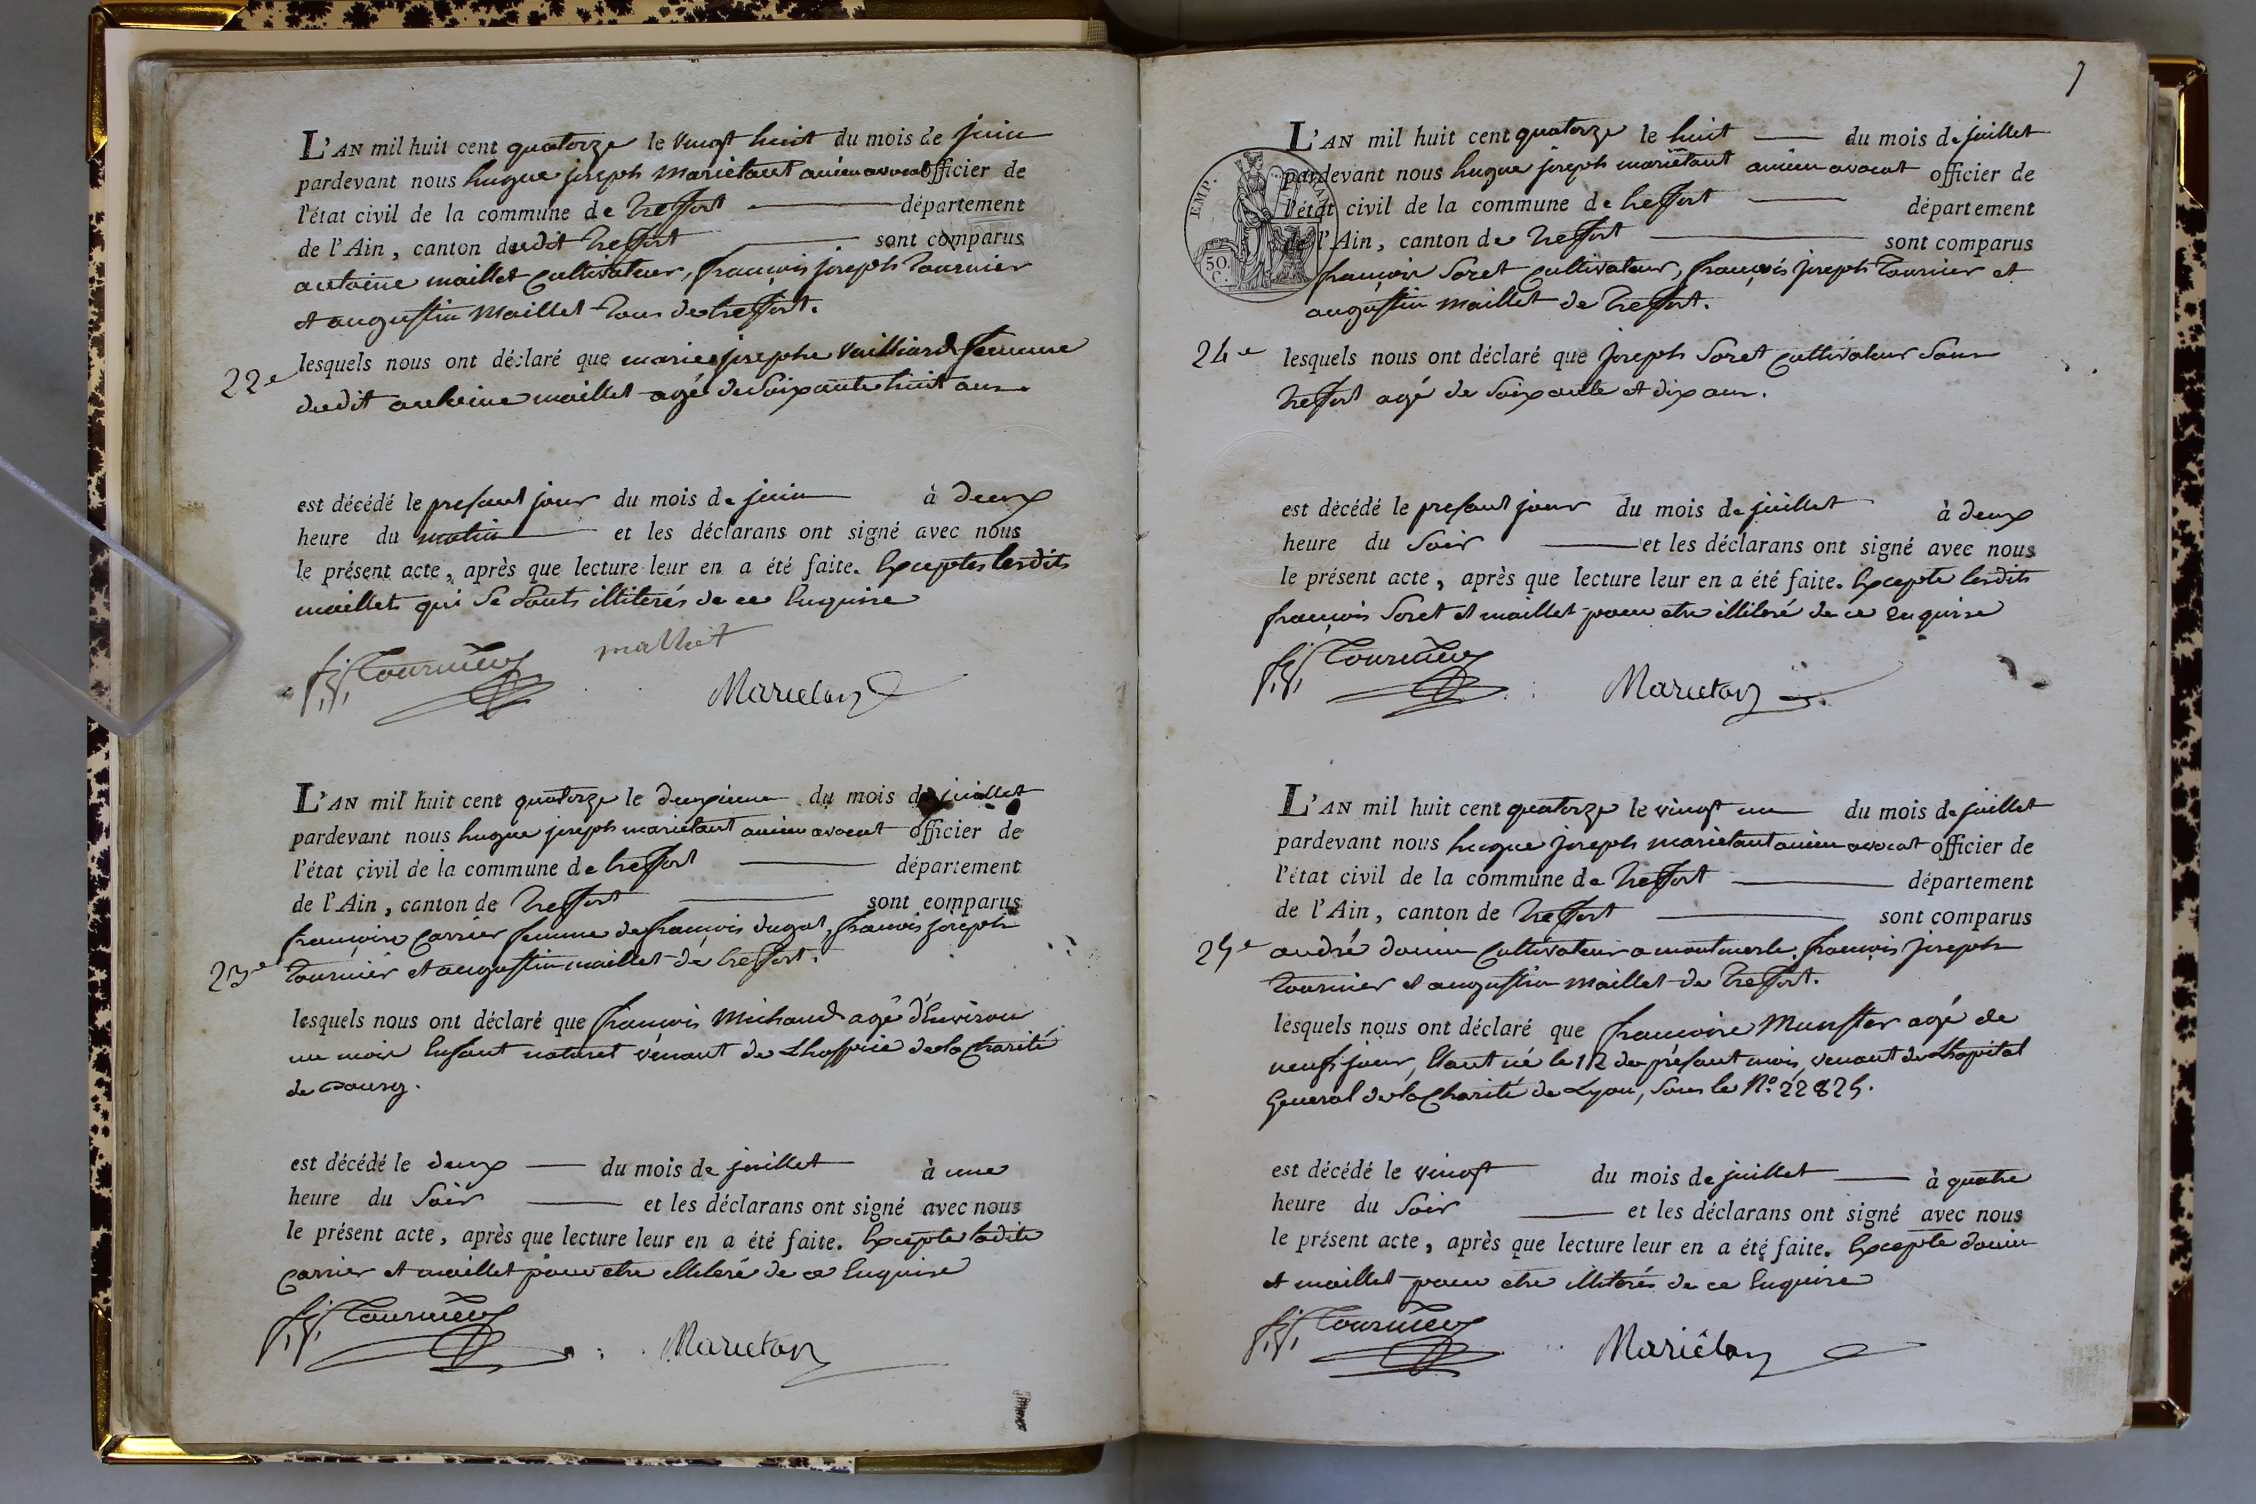 L'AN mil huit cent quatorze le vingt huit du mois de juin
pardevant nous hugue joseph mariétant ancien avocat officier de
l'état civil de la commune de treffort département
de l'Ain, canton dudit treffort sont comparus
antoine maillet cultivateur, françois joseph tournier
et augustin maillet tous de treffort.
22e
lesquels nous ont déclaré que marie josephe Vuilliard femme
dudit antoine maillet agé de soixante huit ans
est décédé le presant jour du mois de juin à deux
heure du matin et les déclarans ont signé avec nous
le présent acte, après que lecture leur en a été faite. Exceptes lesdits
maillets qui se sonts illiterés de ce enquise
f. j. Tournier
malliet
Marieton
L'AN mil huit cent quatorze le deuxieme du mois de juillet
pardevant nous hugue joseph mariétant ancien avocat officier de
l'état civil de la commune de treffort département
de l'Ain, canton de treffort sont comparus
françoise carrier femme de françois dugat, françois joseph
23e
tournier et augustin maillet de treffort.
lesquels nous ont déclaré que françois Michaud agé d'environ
un mois enfant naturel vénant de Lhospice de la Charité
de Bourg.
est décédé le deux du mois de juillet à une
heure du soir et les déclarans ont signé avec nous
le présent acte, après que lecture leur en a été faite. Excepte ladite
carrier et maillet pour etre illiteré de ce enquise
f. j. Tournier
Marieton
7
L'AN mil huit cent quatorze le huit du mois de juillet
pardevant nous hugue joseph mariétant ancien avocat officier de
l'état civil de la commune de treffort département
de l'Ain, canton de treffort sont comparus
EMP.
50 C.
françois Soret cultivateur, françois joseph tournier et
augustin maillet de treffort.
24e
lesquels nous ont déclaré que joseph Soret cultivateur sous
treffort agé de soixante et dix ans.
est décédé le presant jour du mois de juillet à deux
heure du soir et les déclarans ont signé avec nous
le présent acte, après que lecture leur en a été faite. Excepte lesdits
françois Soret et maillet pour etre illiteré de ce enquise
f. j. Tournier
Marieton
L'AN mil huit cent quatorze le vingt un du mois de juillet
pardevant nous hugue joseph mariétant ancien avocat officier de
l'état civil de la commune de treffort département
de l'Ain, canton de treffort sont comparus
25e
andré douin cultivateur a montmerle, françois joseph
tournier et augustin maillet de treffort.
lesquels nous ont déclaré que françoise Munster agé de
neuf jour, Etant né le 12 du présant mois, venant de Lhopital
General de la Charité de Lyon, sous le No. 22825.
est décédé le vingt du mois de juillet à quatre
heure du soir et les déclarans ont signé avec nous
le présent acte, après que lecture leur en a été faite. Excepte douin
et maillet pour etre illiterés de ce enquise
f. j. Tournier
Mariéton